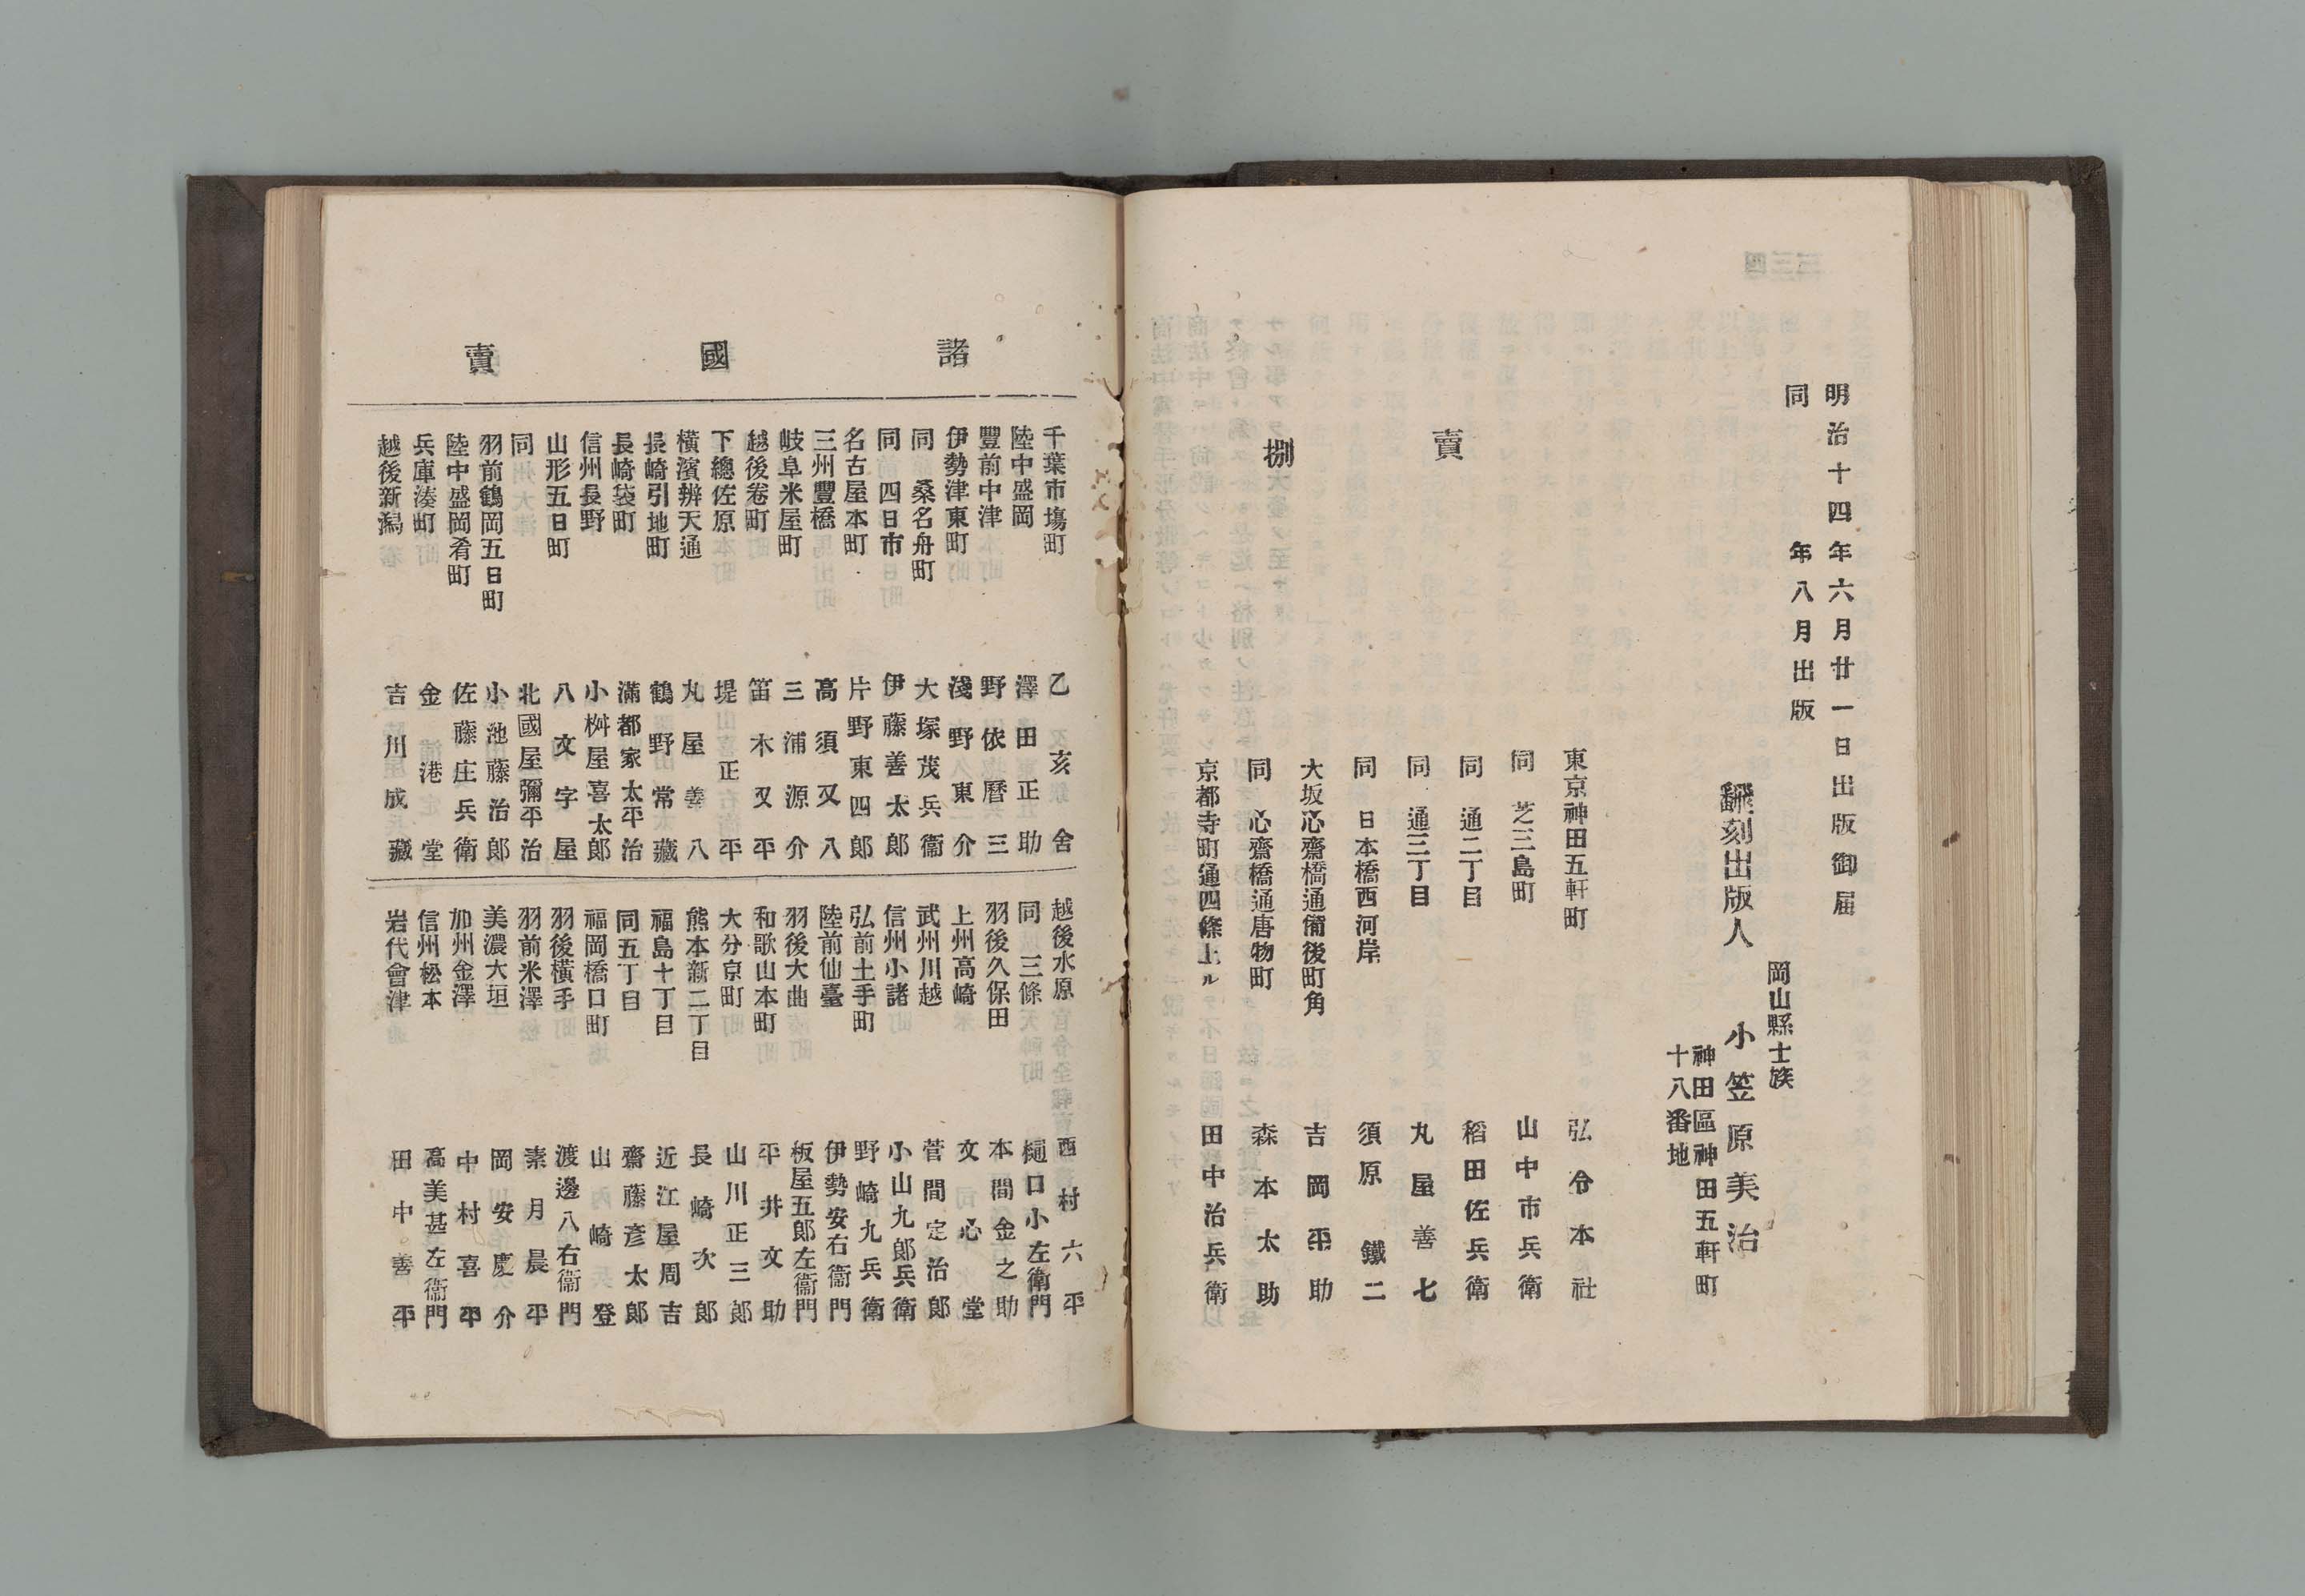 明治十四年六月廿一日出版御届
同年八月出版
岡山縣士族
飜刻出版人 小笠原美治
神田區神田五軒町
十八番地
東京神田五軒町 弘令本社
賣
同 芝三島町 山中市兵衛
同 通二丁目 稻田佐兵衛
同 通三丁目 丸屋善七
同 日本橋西河岸 須原鐵二
大坂心齋橋通備後町角 吉岡平助
捌
同 心齋橋通唐物町 森本太助
京都寺町通四條上ル 田中治兵衛
諸國賣
千葉市塲町 乙亥舍
陸中盛岡 澤田正助
豐前中津 野依曆三
伊勢津東町 淺野東介
同 桑名舟町 大塚茂兵衞
同 四日市 伊藤善太郎
名古屋本町 片野東四郎
三州豐橋 高須又八
岐阜米屋町 三浦源介
越後卷町 笛木又平
下總佐原 堤正平
橫濱辨天通 丸屋善八
長崎引地町 鶴野常藏
長崎袋町 滿都家太平治
信州長野 小桝屋喜太郎
山形五日町 八文字屋
同 北國屋彌平治
羽前鶴岡五日町 小池藤治郎
陸中盛岡肴町 佐藤庄兵衛
兵庫湊町 金港堂
越後新潟 吉川成藏
越後水原 西村六平
同 三條 樋口小左衛門
羽後久保田 本間金之助
上州高崎 文心堂
武州川越 菅間定治郎
信州小諸 小山九郎兵衛
弘前土手町 野崎九兵衛
陸前仙臺 伊勢安右衞門
羽後大曲 板屋五郎左衞門
和歌山本町 平井文助
大分京町 山川正三郎
熊本新二丁目 長崎次郎
福島十丁目 近江屋周吉
同五丁目 齋藤彥太郎
福岡橋口町 山崎登
羽後橫手 渡邊八右衞門
羽前米澤 素月晨平
美濃大垣 岡安慶介
加州金澤 中村喜平
信州松本 高美甚左衞門
岩代會津 田中善平